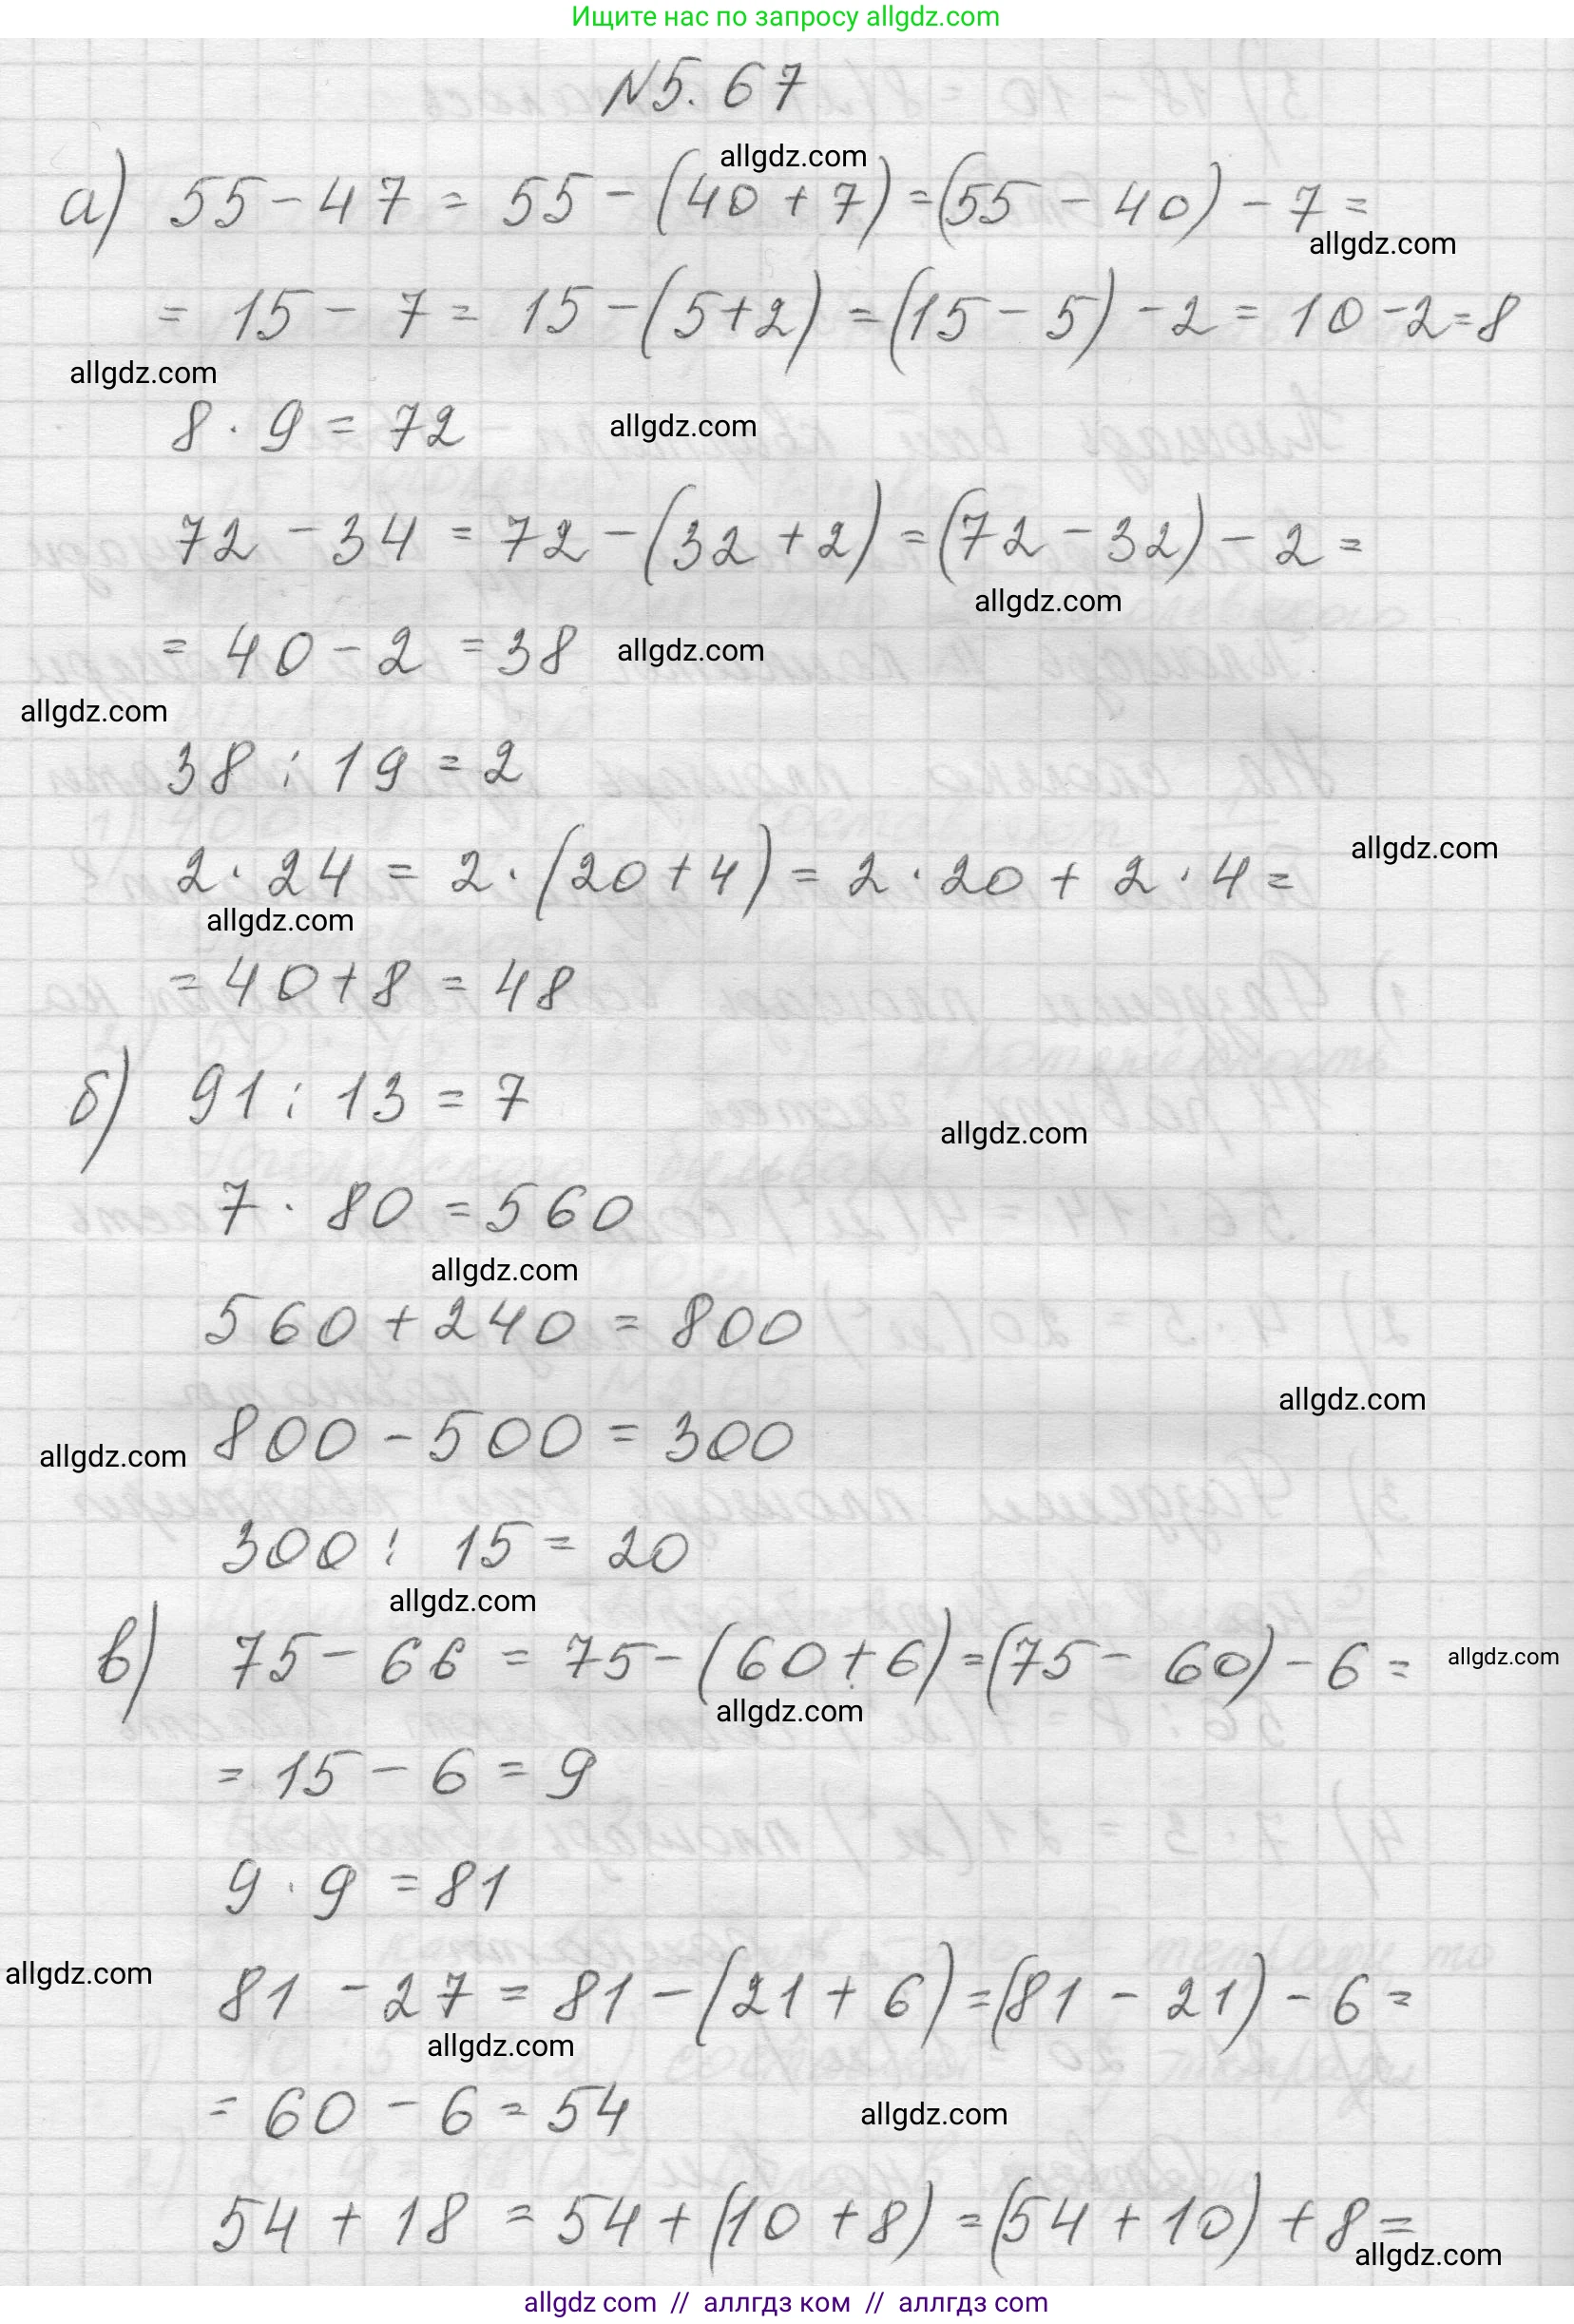 Ищите нас по запросу allgdz.com
N5.67
allgdz.com
а) 55 - 47 = 55 - (40 + 7) = (55 - 40) - 7 =
allgdz.com
= 15 - 7 = 15 - (5+2) = (15 - 5) - 2 = 10 - 2 = 8
allgdz.com
8 · 9 = 72
allgdz.com
72 - 34 = 72 - (32 + 2) = (72 - 32) - 2 =
allgdz.com
= 40 - 2 = 38
allgdz.com
allgdz.com
38 : 19 = 2
allgdz.com
2 · 24 = 2 · (20 + 4) = 2 · 20 + 2 · 4 =
allgdz.com
= 40 + 8 = 48
б) 91 : 13 = 7
allgdz.com
7 · 80 = 560
allgdz.com
560 + 240 = 800
allgdz.com
800 - 500 = 300
allgdz.com
300 : 15 = 20
allgdz.com
в) 75 - 66 = 75 - (60 + 6) = (75 - 60) - 6 =
allgdz.com
allgdz.com
= 15 - 6 = 9
9 · 9 = 81
allgdz.com
81 - 27 = 81 - (21 + 6) = (81 - 21) - 6 =
allgdz.com
= 60 - 6 = 54
allgdz.com
54 + 18 = 54 + (10 + 8) = (54 + 10) + 8 =
allgdz.com
allgdz com // аллгдз ком // аллгдз com